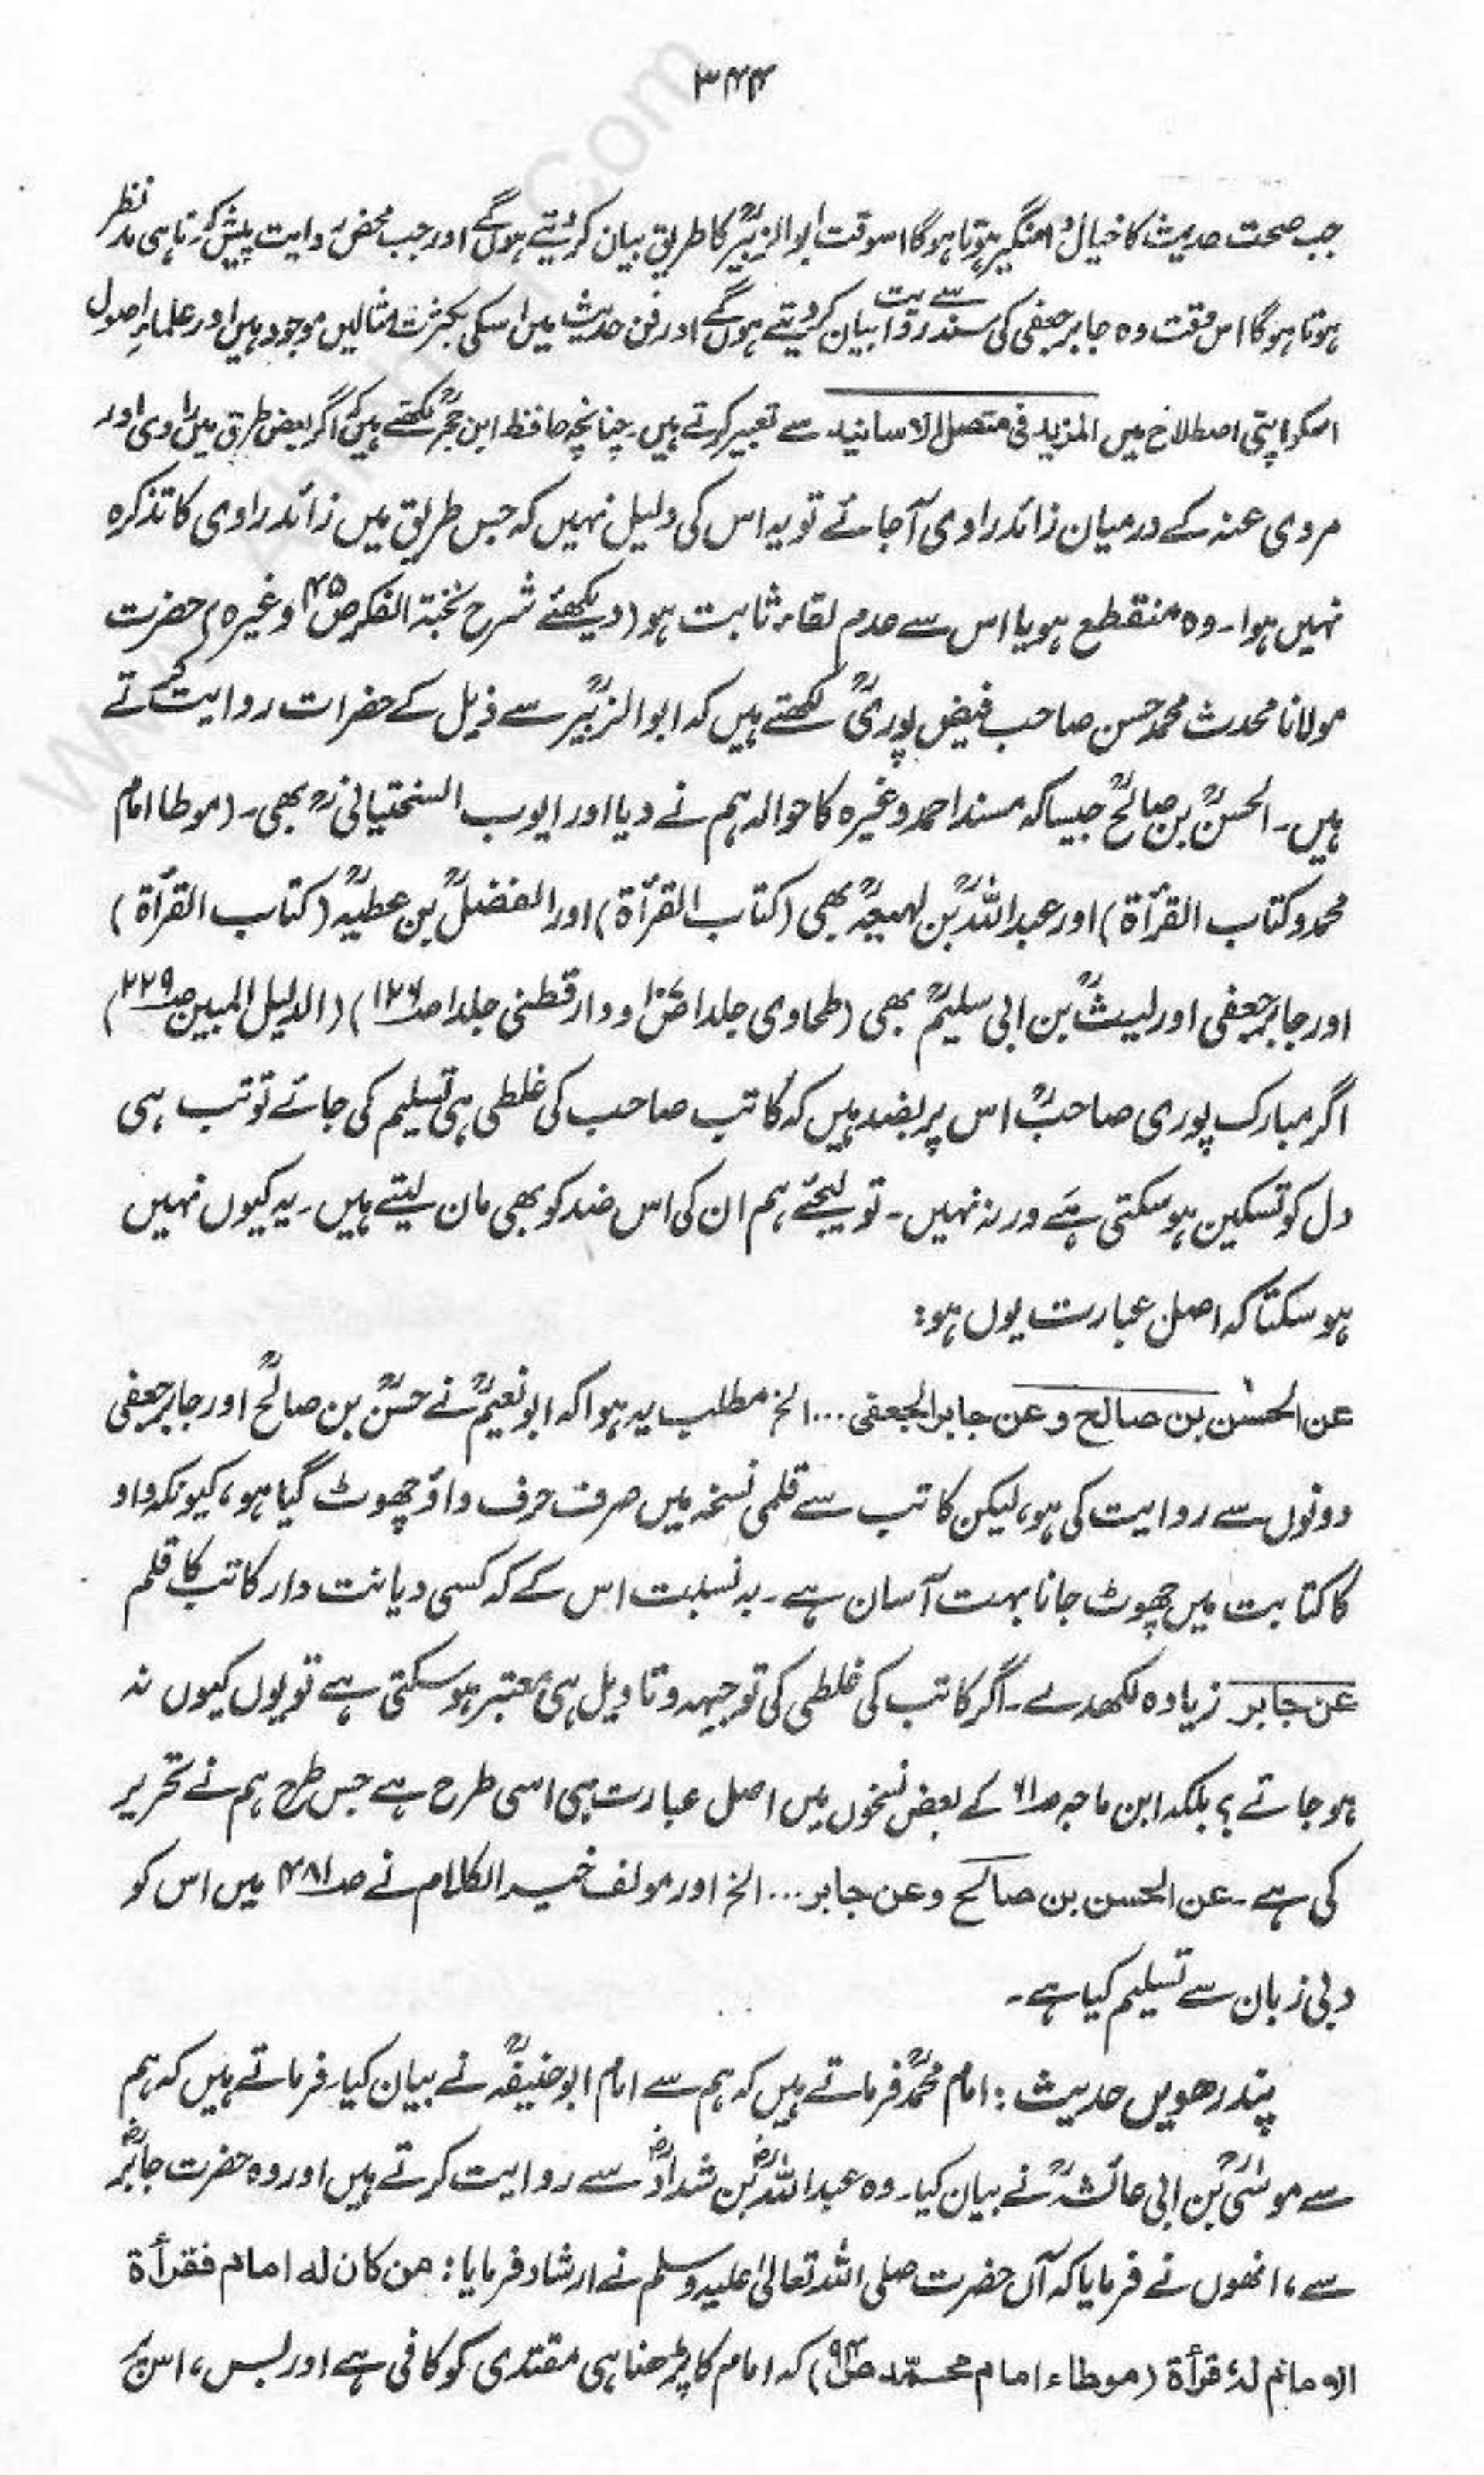 ۳۴۴
جب صحت حدیث کا خیال دامنگیر ہوتا ہوگا اسوقت ابوالزبیرؒ کا طریق بیان کر دیتے ہوں گے اور جب محض روایت پیش کرنا ہی مدنظر
ہوتا ہوگا اس وقت وہ جابر جعفی کی سند سے روایت بیان کر دیتے ہوں گے اور فن حدیث میں اسکی بکثرت مثالیں موجود ہیں اور علماءِ اصول
اسکو اپنی اصطلاح میں المزید فی متصل الاسانید سے تعبیر کرتے ہیں۔ چنانچہ حافظ ابن حجرؒ لکھتے ہیں کہ اگر بعض طرق میں راوی اور
مروی عنہ کے درمیان زائد راوی آ جائے تو یہ اس کی دلیل نہیں کہ جس طریق میں زائد راوی کا تذکرہ
نہیں ہوا۔ وہ منقطع ہو یا اس سے عدم لقاء ثابت ہو (دیکھئے شرح نخبۃ الفکر ص۴۵ وغیرہ) حضرت
مولانا محدث محمد حسن صاحب فیض پوریؒ لکھتے ہیں کہ ابوالزبیرؒ سے ذیل کے حضرات روایت کرتے
ہیں۔ الحسنؒ بن صالحؒ جیسا کہ مسند احمد وغیرہ کا حوالہ ہم نے دیا اور ایوب السختیانیؒ بھی۔ (موطا امام
محمد و کتاب القرأۃ) اور عبداللہؒ بن لہیعہؒ بھی (کتاب القرأۃ) اور الفضلؒ بن عطیہؒ (کتاب القرأۃ)
اور جابر جعفی اور لیثؒ بن ابی سلیمؒ بھی (طحاوی جلد۱ و دارقطنی جلد۱ ص۱۲۶) (الدلیل المبین ص۲۲۹)
اگر مبارک پوری صاحبؒ اس پر بضد ہیں کہ کاتب صاحب کی غلطی ہی تسلیم کی جائے تو تب ہی
دل کو تسکین ہو سکتی ہے ورنہ نہیں۔ تو لیجئے ہم ان کی اس ضد کو بھی مان لیتے ہیں۔ یہ کیوں نہیں
ہو سکتا کہ اصل عبارت یوں ہو:
عن الحسن بن صالح و عن جابر الجعفی ... الخ مطلب یہ ہوا کہ ابو نعیمؒ نے حسنؒ بن صالحؒ اور جابر جعفی
دونوں سے روایت کی ہو، لیکن کاتب سے قلمی نسخہ میں صرف حرف واؤ چھوٹ گیا ہو، کیونکہ واو
کا کتابت میں چھوٹ جانا بہت آسان ہے۔ بہ نسبت اس کے کہ کسی دیانت دار کاتب کا قلم
عن جابر زیادہ لکھدے۔ اگر کاتب کی غلطی کی توجیہہ و تاویل ہی معتبر ہو سکتی ہے تو یوں کیوں نہ
ہو جائے؟ بلکہ ابن ماجہ ص۶۱ کے بعض نسخوں میں اصل عبارت ہی اسی طرح ہے جس طرح ہم نے تحریر
کی ہے۔ عن الحسن بن صالح وعن جابر ... الخ اور مولف خیر الکلام نے ص۴۸۱ میں اس کو
دبی زبان سے تسلیم کیا ہے۔
پندرھویں حدیث: امام محمدؒ فرماتے ہیں کہ ہم سے امام ابوحنیفہؒ نے بیان کیا۔ فرماتے ہیں کہ ہم
سے موسٰیؒ بن ابی عائشہؒ نے بیان کیا۔ وہ عبداللہؓ بن شدادؓ سے روایت کرتے ہیں اور وہ حضرت جابرؓ
سے، انھوں نے فرمایا کہ آں حضرت صلی اللہ تعالیٰ علیہ وسلم نے ارشاد فرمایا: من کان لہ امام فقرأۃ
الامام لہٗ قرأۃ (موطاء امام محمّد ص۹۴) کہ امام کا پڑھنا ہی مقتدی کو کافی ہے اور بس، اس پر